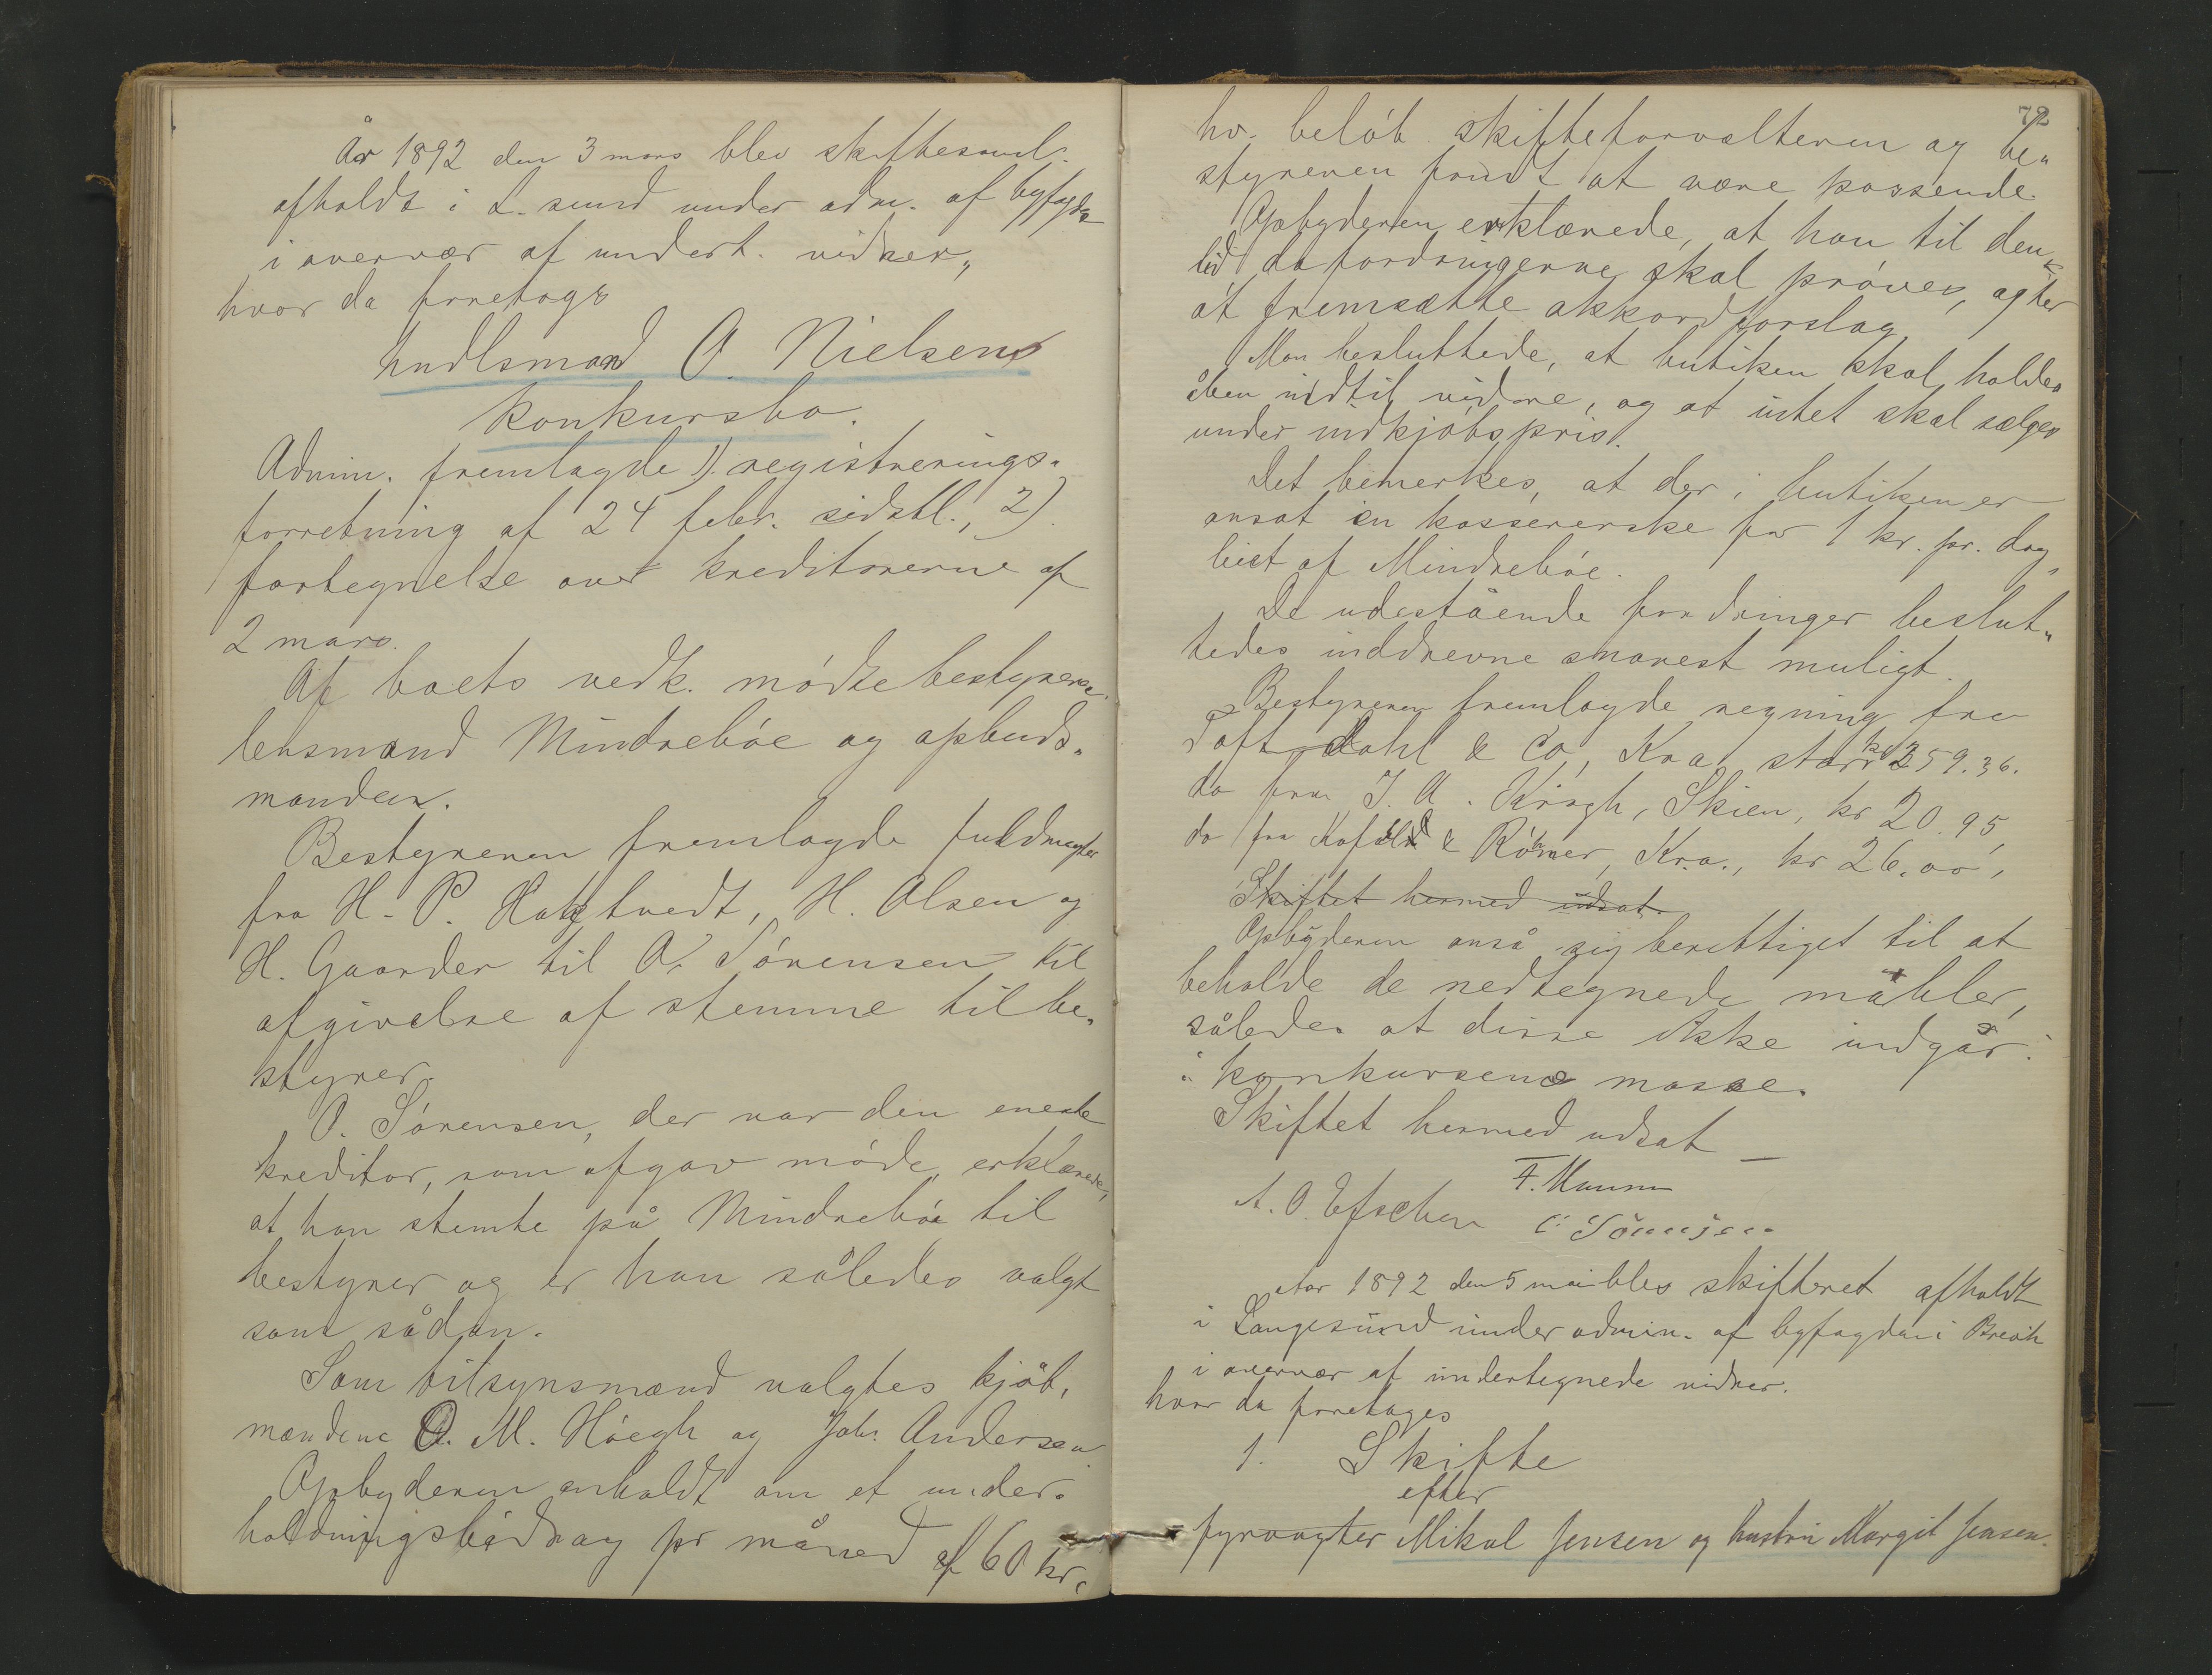 År 1892 den 3 mars blev skiftesaml.
afholdt i L.sund under adm. af byfogden
i overvær af undert. vidner,,
hvor da foretogs
hndlsmand O. Nielsens
konkursbo.
Admin. fremlagde 1). registrerings-
forretning af 24 febr. sidstl., 2).
fortegnelse over kreditorerne af
2 mars.
Af boets vedk. mødte bestyreren
lensmand Mindrebøe og opbuds-
manden.
Bestyreren fremlagde fuldmagter
fra H. P. , H. Olsen og
H. Gaarder til O. Sørensen til
afgivelse af stemme til be-
styrer.
O. Sørensen, der var den eneste
kreditor, som afgav møde, erklærede,
at han stemte på Mindrebøe til
bestyrer og er han således valgt
som sådan.
Som tilsynsmænd valgtes kjøb-
mændene O. M. Høegh og Joh. Andersen
Opbyderen anholdt om et under-
holdningsbidrag pr måned af 60 kr.
72
hv. beløb skifteforvalteren og be-
styreren fandt at være passende.
Opbyderen erklærede, at han til den
tid da fordringerne skal prøves, agter
at fremsætte akkordforslag.
Man besluttede, at butiken skal holdes
åben indtil videre, og at intet skal sælges
under indkjøbspris.
Det bemerkes, at der i butiken er
ansat en kassererske for 1 kr. pr. dag,
leiet af Mindrebøe.
De udestående fordringer beslut-
tedes inddrevne snarest muligt.
Bestyreren fremlagde regning fra
Toftdahl & Co, Kra, stor kr 259.36.
do fra J. A. Krogh, Skien, kr 20.95,
do fra & Rømer, Kra., kr 26.00,
Skiftet hermed udsat.
Opbyderen anså sig berettiget til at
beholde de nedtegnede møbler,
således at disse ikke indgår
i konkursens masse.
Skiftet hermed udsat
F. Munn
A. O. C. Tønnesen
Aar 1892 den 5 mai blev skifteret afholdt
i Langesund under admin. af byfogden i Brevik
i overvær af undertegnede vidner.
hvor da foretages
1. Skifte
efter
fyrvogter Mikal Jensen og hustru Margit Jensen.